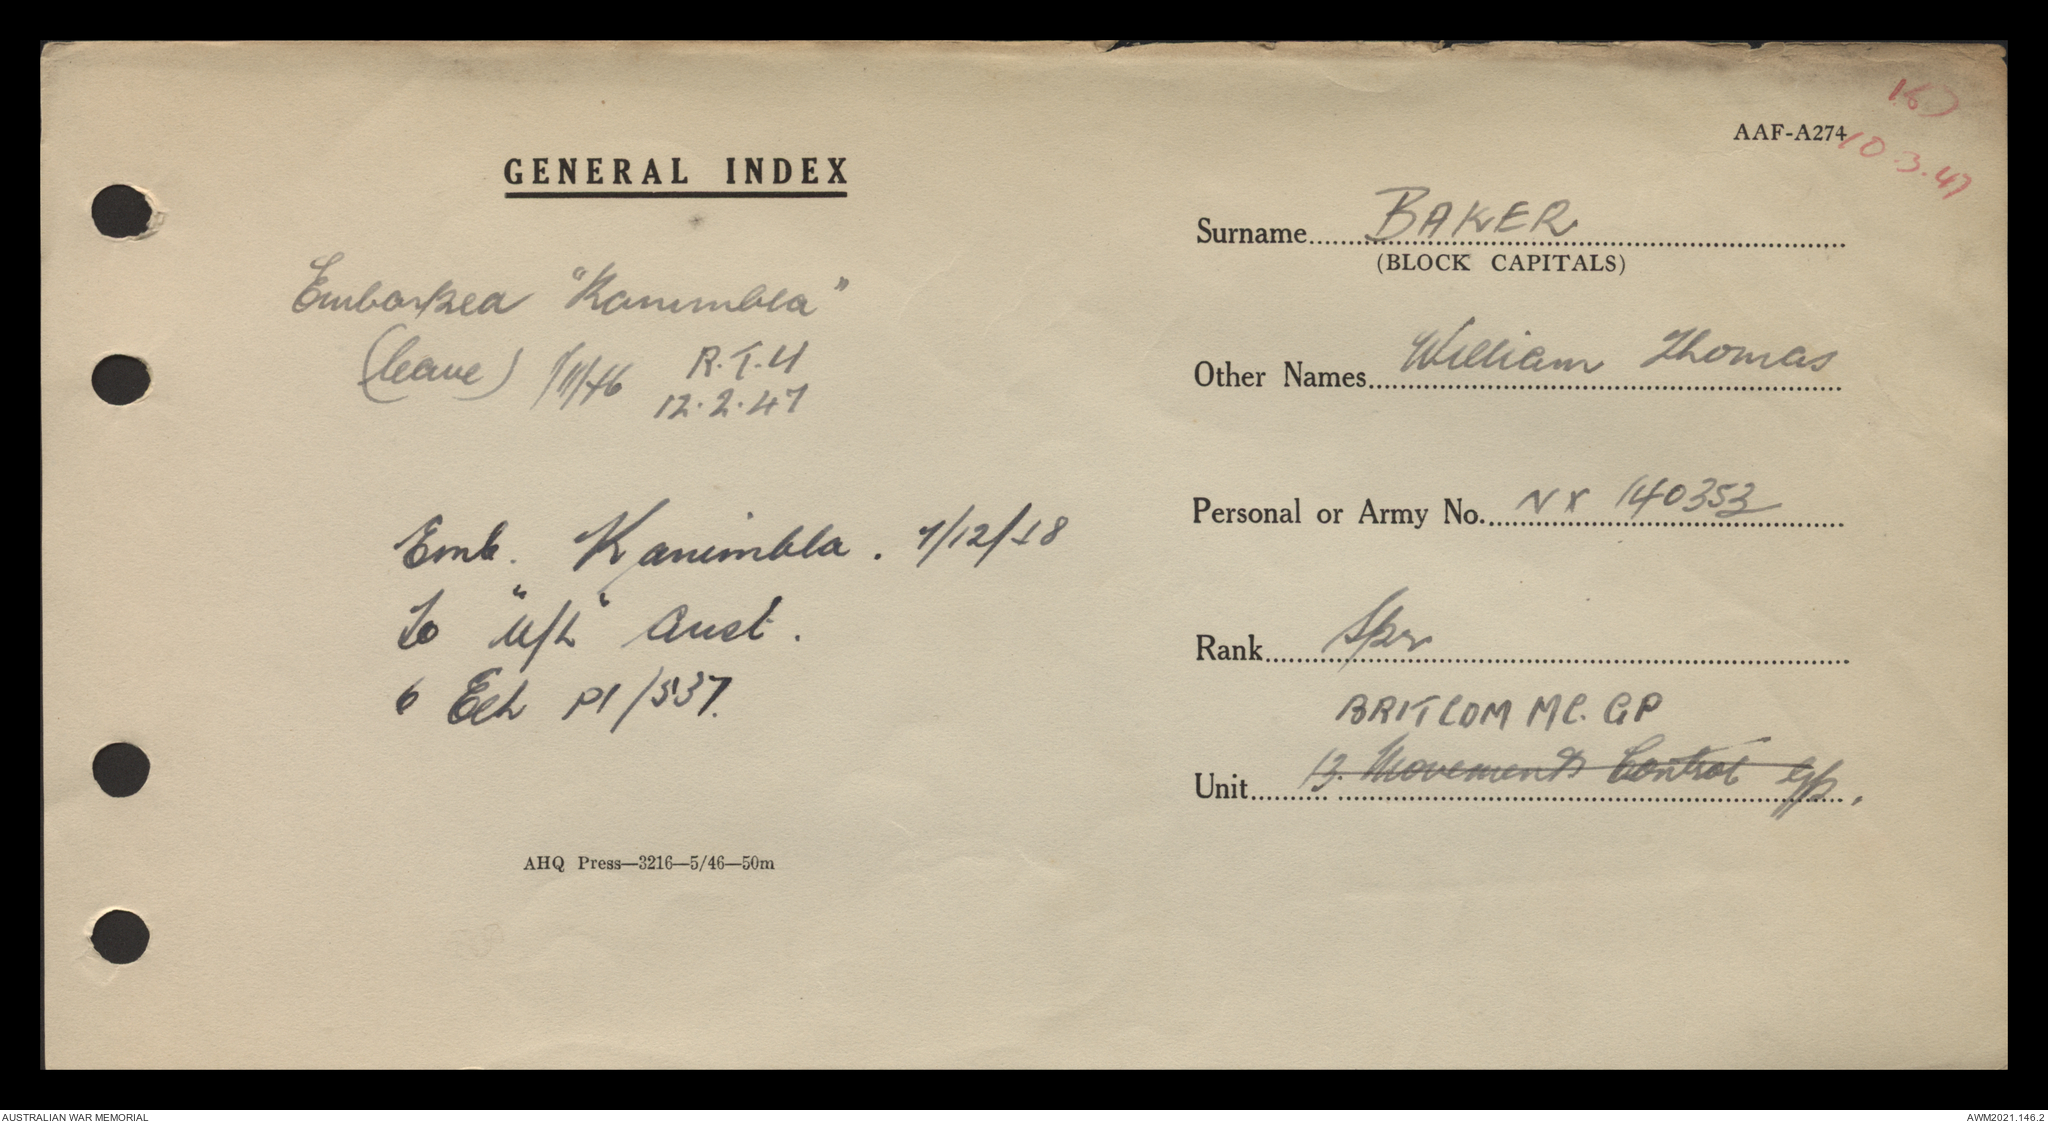 GENERAL INDEX
Embarked "Kanimbla"
(leave) 1/11/46 R.T.U
12.2.47
Emb. Kanimbla. 7/12/48
To "U/L" Aust.
6 Ech P1/537.
AHQ Press—3216—5/46—50m
167
AAF-A274
10.3.47
Surname BAKER
(BLOCK CAPITALS)
Other Names William Thomas
Personal or Army No. NX 140353
Rank Spr
BRITCOM MC. GP
Unit 13. Movements Control Gp.
AUSTRALIAN WAR MEMORIAL
AWM2021.146.2